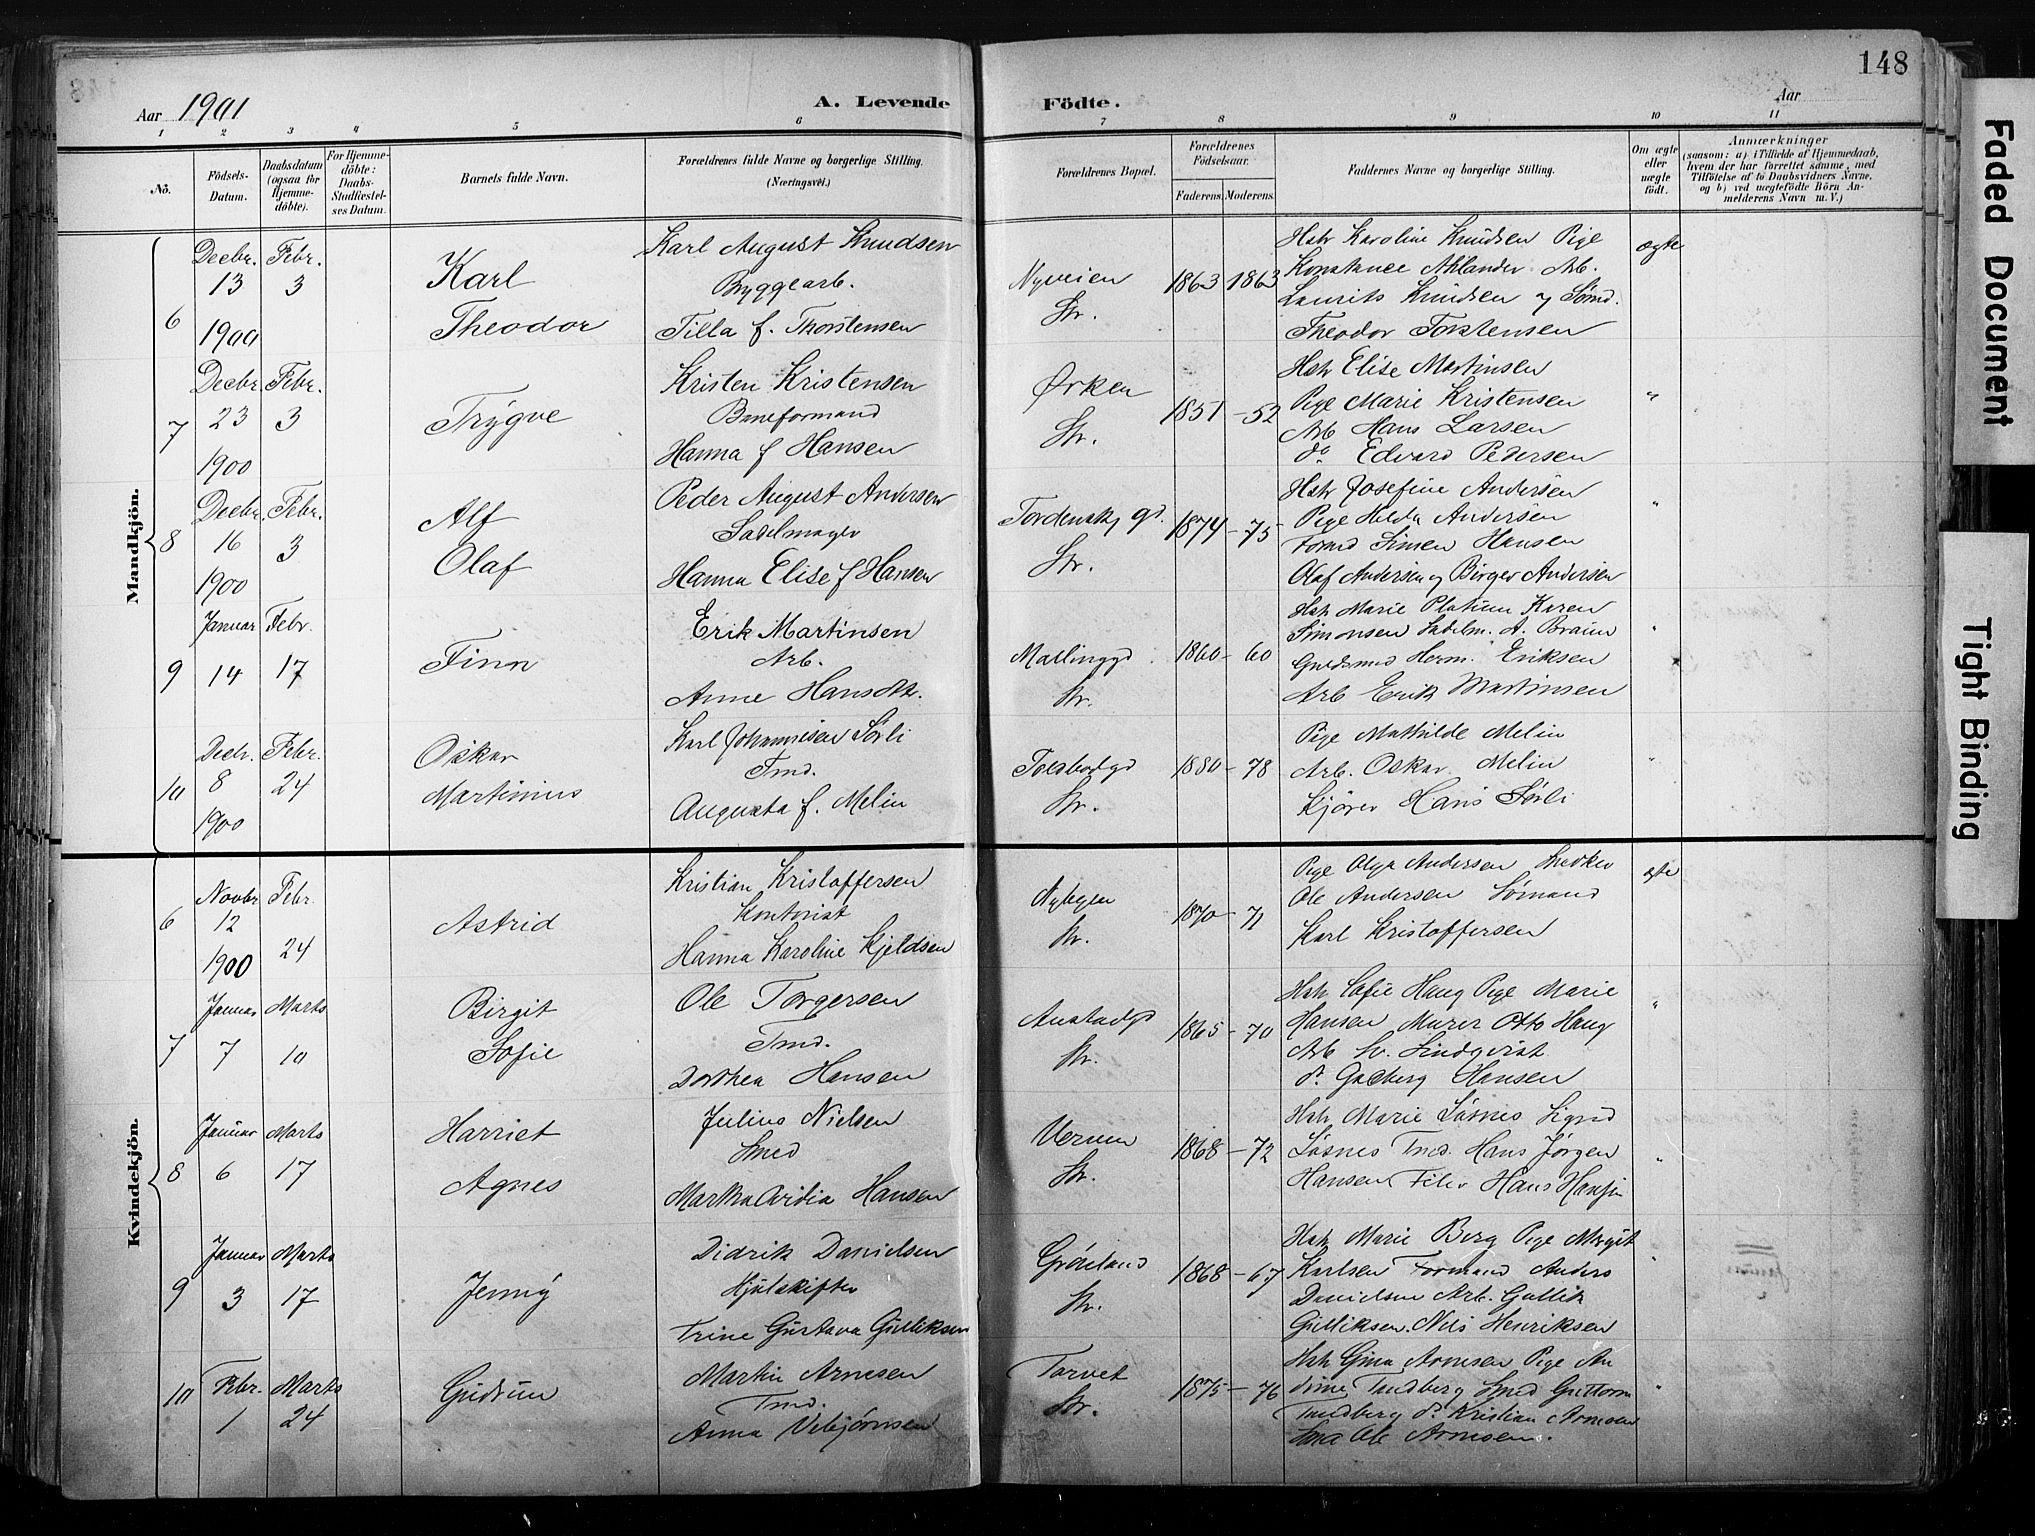 148
Aar 1901
A. Levende
Födte.
Aar
1 2 3 4 5 6 7 8 9 10 11
Nö.
Födsels-
Datum.
Daabsdatum
(ogsaa for
Hjemme-
döbte).
For Hjemme-
döbte:
Daabs-
Stadfæstel-
ses Datum.
Barnets fulde Navn.
Forældrenes fulde Navne og borgerlige Stilling.
(Næringsvei.)
Forældrenes Bopæl.
Forældrenes
Födselsaar.
Faderens. Moderens.
Faddernes Navne og borgerlige Stilling.
Om ægte
eller
uægte
födt.
Anmærkninger
(saasom: a) i Tilfælde af Hjemmedaab,
hvem der har forrettet samme, med
Tilföielse af to Daabsvidners Navne,
og b) ved uægtefödte Börn An-
melderens Navn m. V.)
Mandkjön.
6
Decbr.
13
1900
Febr.
3
Karl
Theodor
Karl August Knudsen
Byggearb.
Tilla f. Thorstensen
Nyveien
Str.
1863 1863
Hstr Karoline Knudsen Pige
Konstance Ahlander Arb.
Laurits Knudsen og Sømd.
Theodor Torstensen
ægte
7
Decbr
23
1900
Febr.
3
Trygve
Kristen Kristensen
Baneformand
Hanna f Hansen
Ørken
Str.
1851 - 52
Hstr Elise Martinsen
Pige Marie Kristensen
Arb Hans Larsen
do Edvard Pedersen
"
8
Decbr.
16
1900
Febr.
3
Alf
Olaf
Peder August Andersen
Sadelmager
Hanna Elise f Hansen
Tordenskj gd.
Str.
1874 - 75
Hstr Josefine Andersen
Pige Hilda Andersen
Formd Simen Hansen
Olaf Andersen og Birger Andersen
"
9
Januar
14
Febr.
17
Finn
Erik Martinsen
Arb.
Anne Hansdtr.
Mallinggd.
Str.
1860 - 60
Hstr Marie Platum Karen
Simonsen Sadelm. A. Braun
Guldsmed Herm. Eriksen
Arb Erik Martinsen
"
10
Decbr.
8
1900
Febr.
24
Oskar
Martinius
Karl Johannisen Sørli
Tmd.
Augusta f. Melin
Toldbodgd
Str.
1880 - 78
Pige Mathilde Melin
Arb. Oskar Melin
Kjører Hans Sørli
"
Kvindekjön.
6
Novbr
12
1900
Febr.
24
Astrid
Kristian Kristoffersen
Kontorist
Hanna Karoline Kjeldsen
Nybyen
Str.
1870 - 71
Pige Olga Andersen Snedker
Ole Andersen Sømand
Karl Kristoffersen
ægte
7
Januar
7
Marts
10
Birgit
Sofie
Ole Torgersen
Tmd.
Dorthea Hansen
Austadgd
Str.
1865 - 70
Hstr Sofie Haug Pige Marie
Hansen Murer Otto Haug
Arb Lindqvist
do Hansen
"
8
Januar
6
Marts
17
Harriet
Agnes
Julius Nielsen
Smed
Martha Ovidia Hansen
Str.
1868 - 72
Hstr Marie Løsnes Sigrid
Løsnes Tmd. Hans Jørgen
Hansen Filer Hans Hansen
"
9
Januar
3
Marts
17
Jenny
Didrik Danielsen
Hjulskifter
Trine Gustava Gulliksen
Grønland
Str.
1868 - 67
Hstr Marie Berg Pige Margit
Karlsen Formand Anders
Danielsen Arb. Gullik
Gulliksen. Nils Henriksen
"
10
Febr.
1
Marts
24
Gudrun
Martin Arnesen
Tmd.
Anna Vebjørnsen
Torvet
Str.
1875 - 76
Hstr Gina Arnesen Pige An
drine Tandberg Smed Guttorm
Tandberg do Kristian Arnesen
Smd Ole Arnesen.
"
Faded Document
Tight Binding